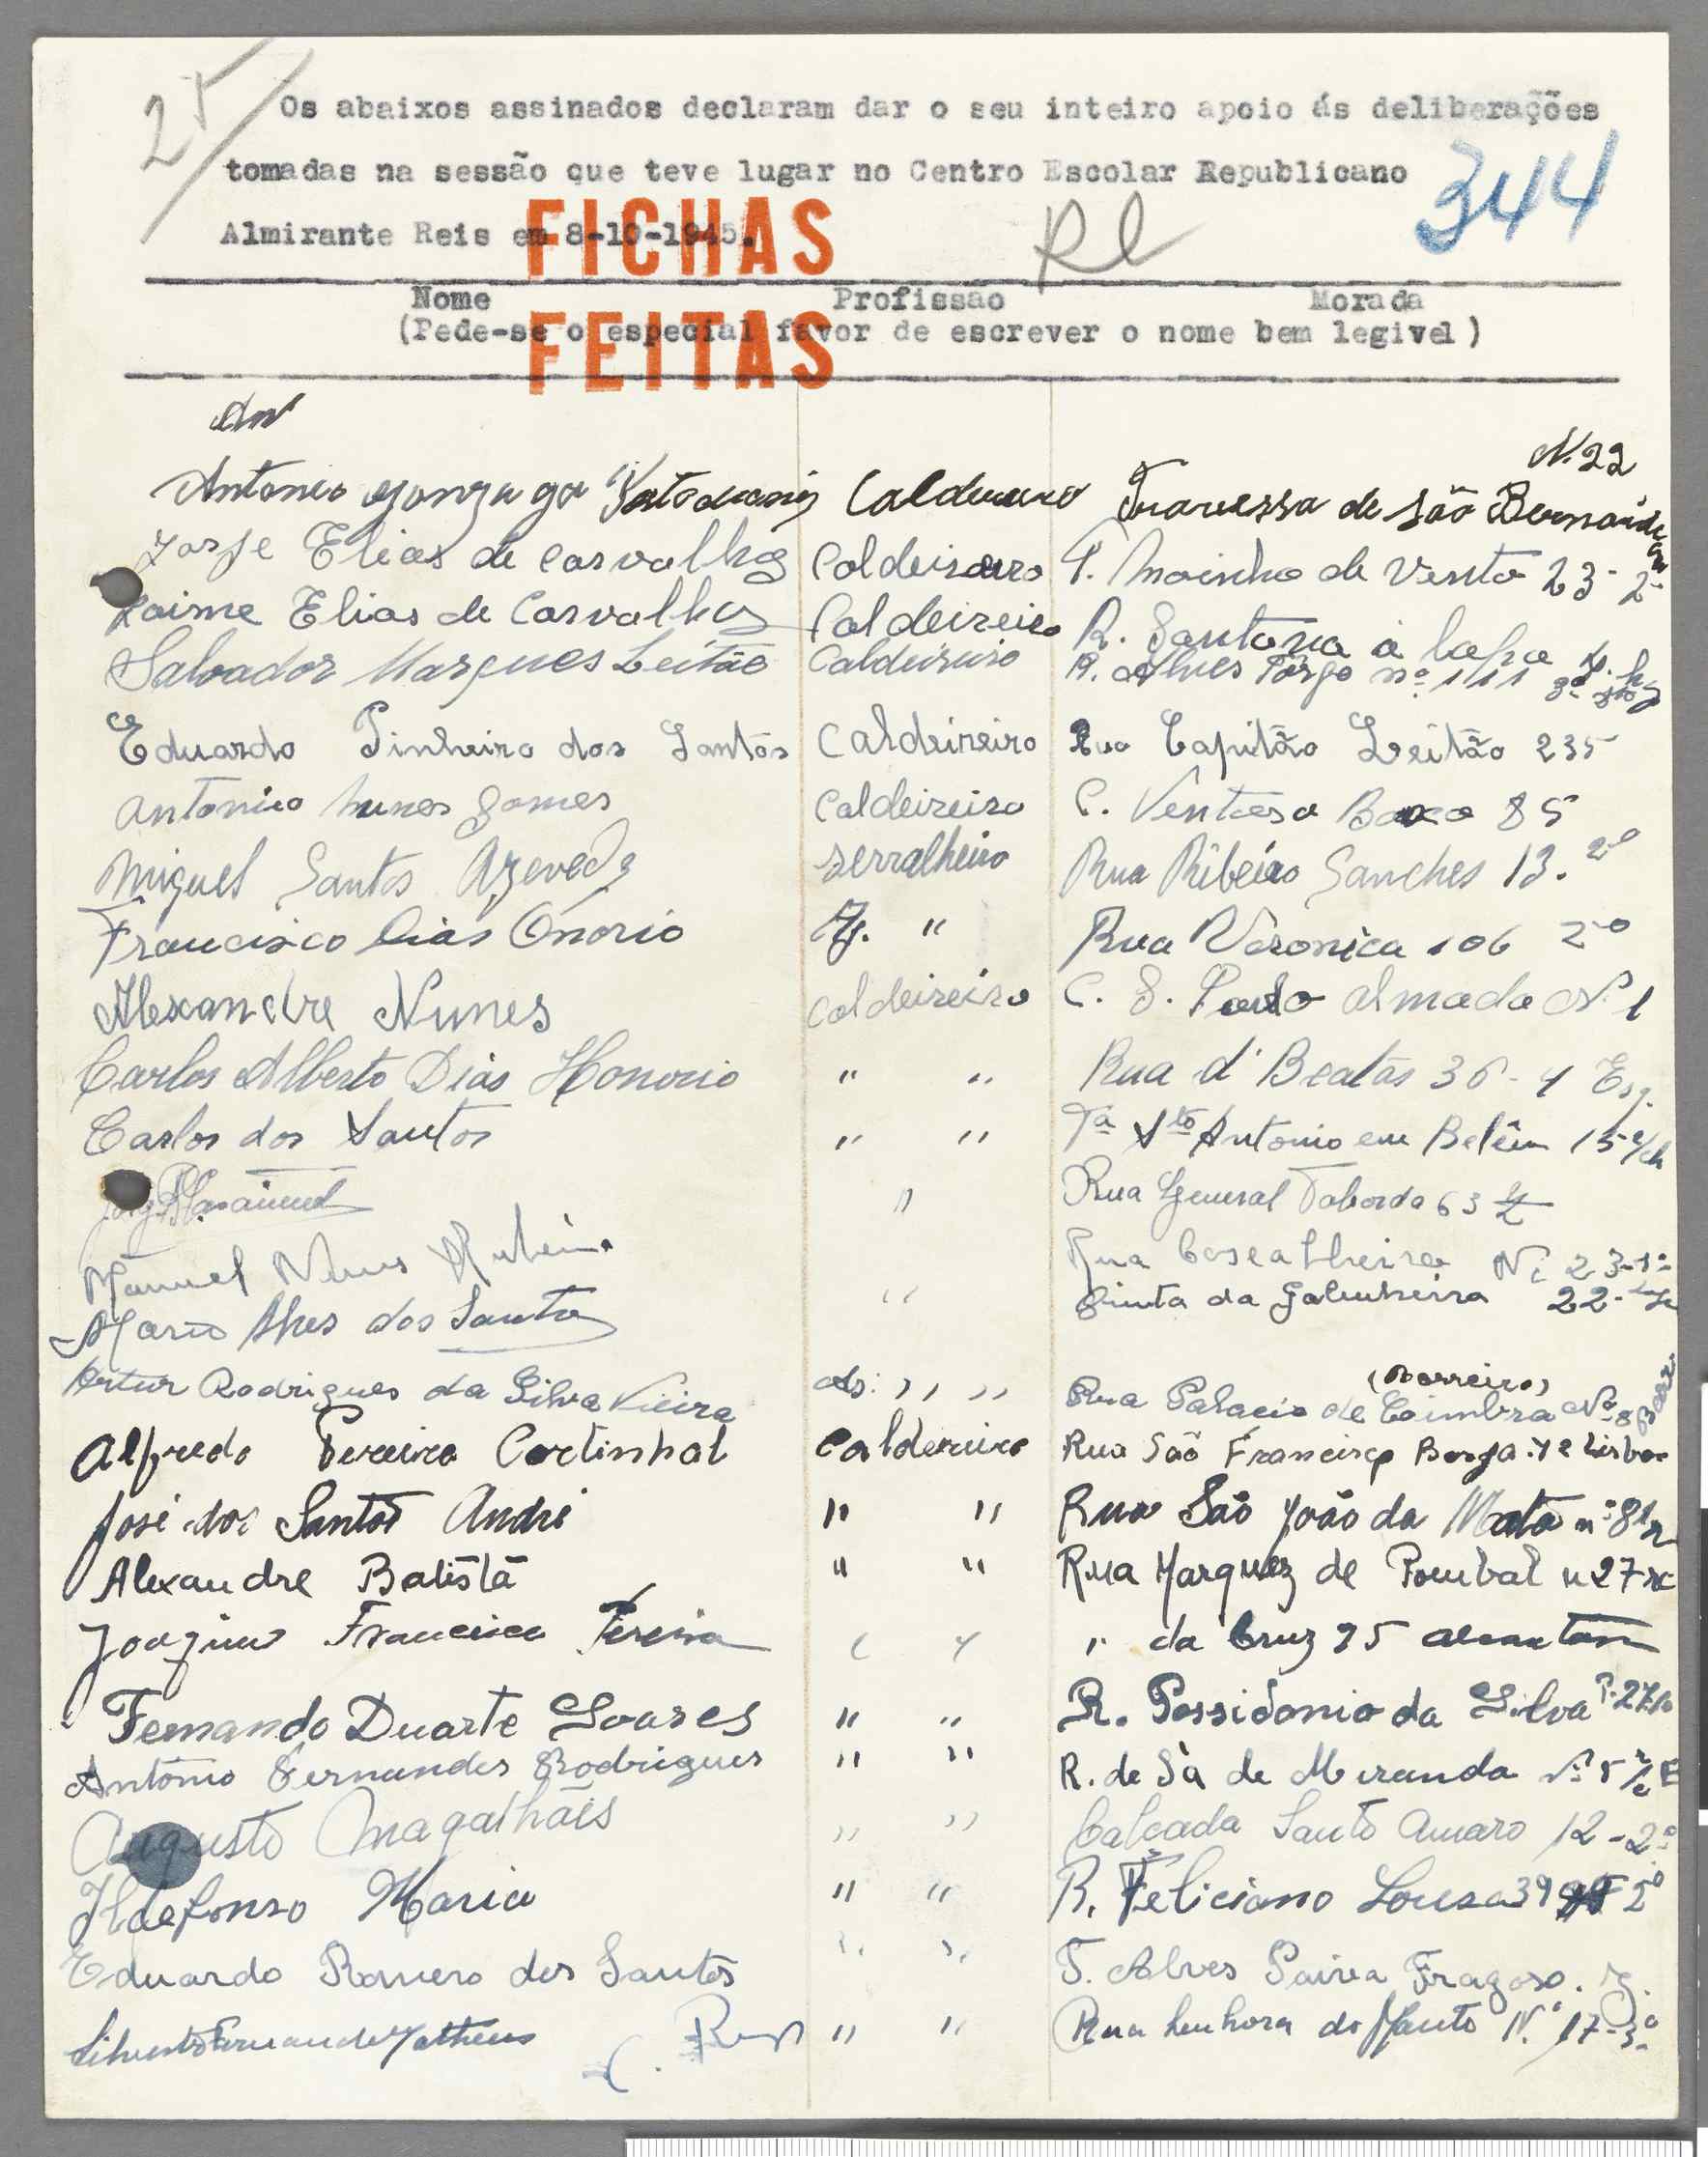 25
Os abaixos assinados declaram dar o seu inteiro apoio ás deliberações
tomadas na sessão que teve lugar no Centro Escolar Republicano
344
Almirante Reis em 8-10-1945.
FICHAS
Rl
Nome Profissão Morada
(Pede-se o especial favor de escrever o nome bem legivel)
FEITAS
Nº 22
Antonio Gonzaga Caldeireiro Travessa de São Bernardino
Jorge Elias de Carvalho Caldeireiro T. Moinho de Vento 23-2º
Jaime Elias de Carvalho Caldeireiro R. Santana á Lapa
Salvador Marques Leitão Caldeireiro R. Alves Torgo nº 111
Eduardo Pinheiro dos Santos Caldeireiro Rua Capitão Leitão 235
Antonio Nunes Gomes Caldeireiro C. Ventosa Baxo 85
Miguel Santos Azevedo serralheiro Rua Ribeiro Sanches 13. 2º
Francisco Dias Onorio " Rua Veronica 106 2º
Alexandre Nunes Caldeireiro C. S. Paulo Almada Nº 1
Carlos Alberto Dias Honorio " " Rua d' Beatas 36-4 Esq.
Carlos dos Santos " " Tª Stº Antonio em Belêm 15 r/ch
" Rua General Taborda 63
Manuel Nunes Rubeiro Rua Nº 23-1º
Mario Alves dos Santos " Quinta da Galinheira 22
Artur Rodrigues da Silva Vieira " " Rua Palacio de Coimbra (Barreiro)
Alfredo Pereira Cortinhal Caldeireiro Rua São Francisco Borga Lisboa
José dos Santos André " " Rua São João da Mata nº
Alexandre Batista " " Rua Marquez de Pombal n 27
Joaquim Francisco Pereira " " " da Cruz 95
Fernando Duarte Soares " " R. Possidonio da Silva
António Fernandes Rodrigues " " R. de Sà de Miranda Nº
Augusto Magalhãis " " Calçada Santo Amaro 12-2º
Ildefonso Maria " " R. Feliciano Sousa 39 2º
Eduardo Romero dos Santos " " T. Alves Paiva Fragoso. 7.
Fernande Matheus " " Rua Senhora do Monte Nº 17-3º